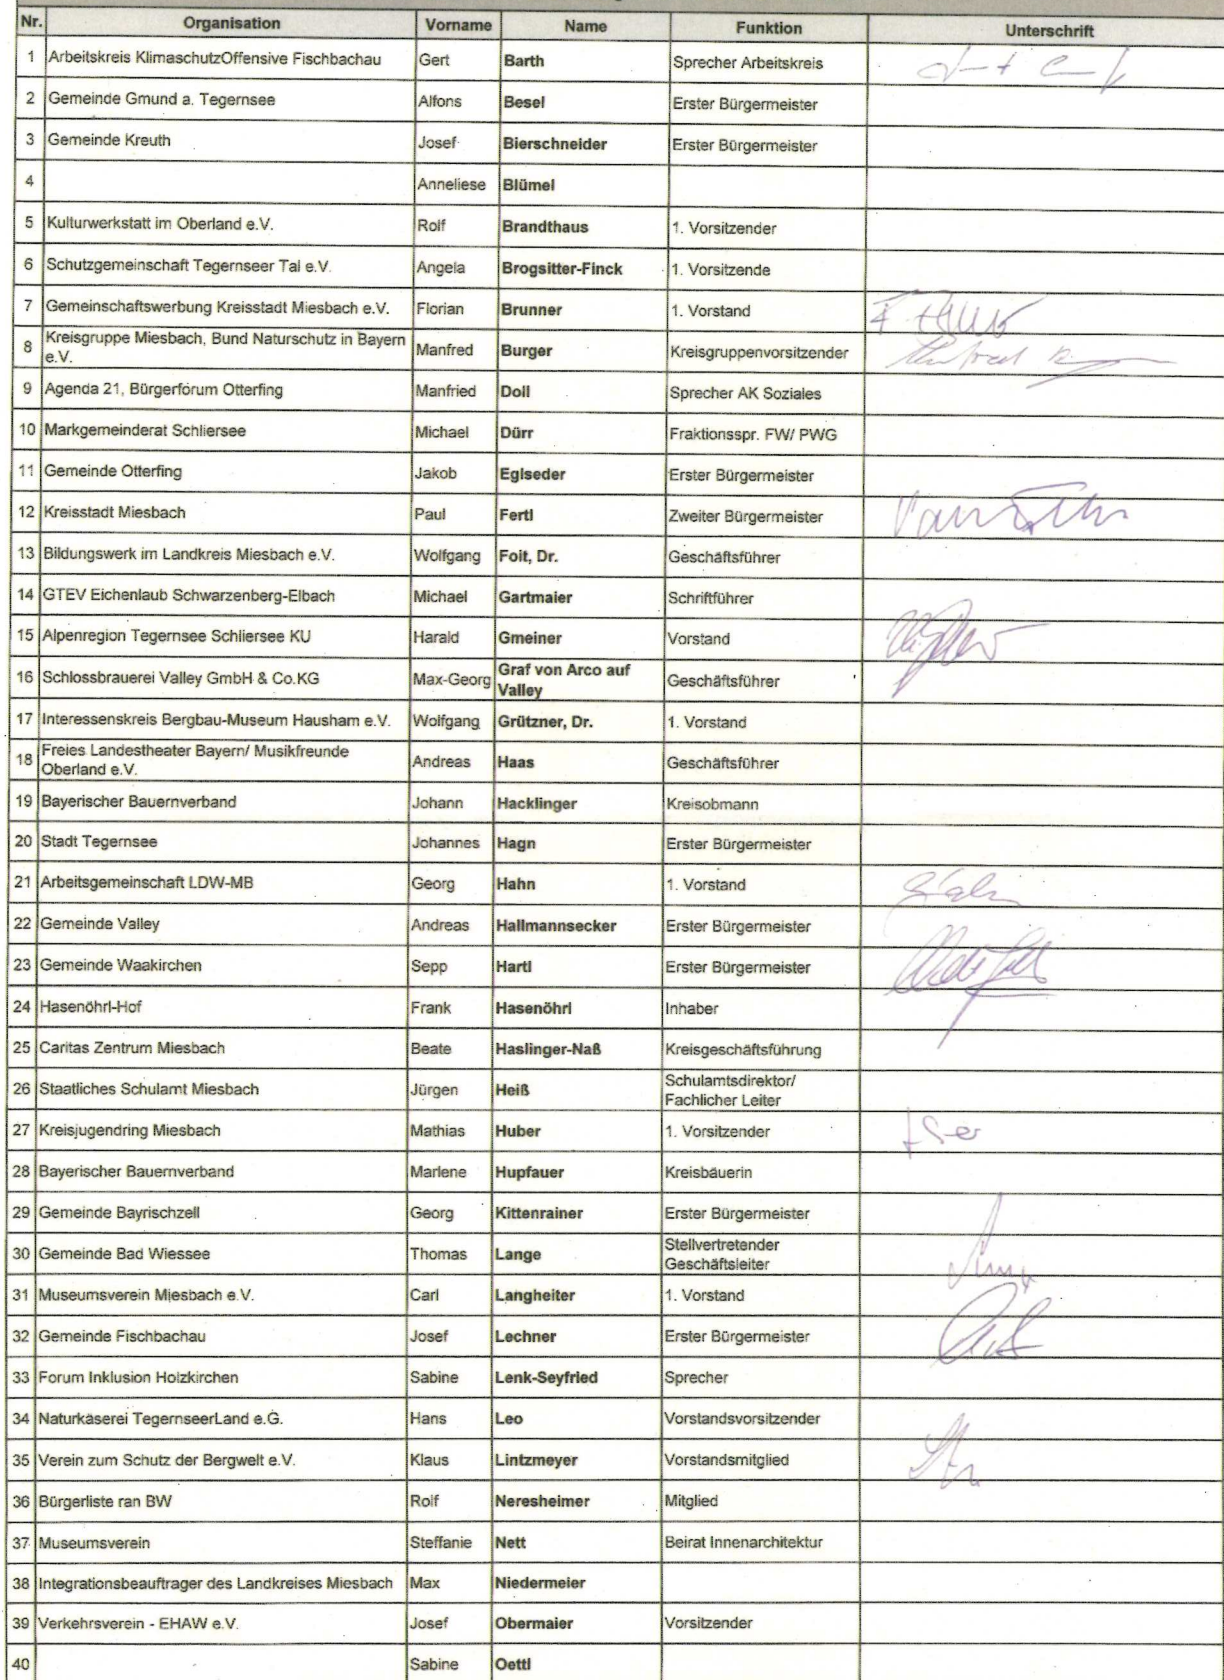 Nr. Organisation Vorname Name Funktion Unterschrift
1 Arbeitskreis KlimaschutzOffensive Fischbachau Gert Barth Sprecher Arbeitskreis
2 Gemeinde Gmund a. Tegernsee Alfons Besel Erster Bürgermeister
3 Gemeinde Kreuth Josef Bierschneider Erster Bürgermeister
4 Anneliese Blümel
5 Kulturwerkstatt im Oberland e.V. Rolf Brandthaus 1. Vorsitzender
6 Schutzgemeinschaft Tegernseer Tal e.V. Angela Brogsitter-Finck 1. Vorsitzende
7 Gemeinschaftswerbung Kreisstadt Miesbach e.V. Florian Brunner 1. Vorstand
8 Kreisgruppe Miesbach, Bund Naturschutz in Bayern
e.V. Manfred Burger Kreisgruppenvorsitzender
9 Agenda 21, Bürgerforum Otterfing Manfried Doll Sprecher AK Soziales
10 Markgemeinderat Schliersee Michael Dürr Fraktionsspr. FW/ PWG
11 Gemeinde Otterfing Jakob Eglseder Erster Bürgermeister
12 Kreisstadt Miesbach Paul Fertl Zweiter Bürgermeister
13 Bildungswerk im Landkreis Miesbach e.V. Wolfgang Foit, Dr. Geschäftsführer
14 GTEV Eichenlaub Schwarzenberg-Elbach Michael Gartmaier Schriftführer
15 Alpenregion Tegernsee Schliersee KU Harald Gmeiner Vorstand
16 Schlossbrauerei Valley GmbH & Co.KG Max-Georg Graf von Arco auf
Valley Geschäftsführer
17 Interessenskreis Bergbau-Museum Hausham e.V. Wolfgang Grützner, Dr. 1. Vorstand
18 Freies Landestheater Bayern/ Musikfreunde
Oberland e.V. Andreas Haas Geschäftsführer
19 Bayerischer Bauernverband Johann Hacklinger Kreisobmann
20 Stadt Tegernsee Johannes Hagn Erster Bürgermeister
21 Arbeitsgemeinschaft LDW-MB Georg Hahn 1. Vorstand
22 Gemeinde Valley Andreas Hallmannsecker Erster Bürgermeister
23 Gemeinde Waakirchen Sepp Hartl Erster Bürgermeister
24 Hasenöhrl-Hof Frank Hasenöhrl Inhaber
25 Caritas Zentrum Miesbach Beate Haslinger-Naß Kreisgeschäftsführung
26 Staatliches Schulamt Miesbach Jürgen Heiß Schulamtsdirektor/
Fachlicher Leiter
27 Kreisjugendring Miesbach Mathias Huber 1. Vorsitzender
28 Bayerischer Bauernverband Marlene Hupfauer Kreisbäuerin
29 Gemeinde Bayrischzell Georg Kittenrainer Erster Bürgermeister
30 Gemeinde Bad Wiessee Thomas Lange Stellvertretender
Geschäftsleiter
31 Museumsverein Miesbach e.V. Carl Langheiter 1. Vorstand
32 Gemeinde Fischbachau Josef Lechner Erster Bürgermeister
33 Forum Inklusion Holzkirchen Sabine Lenk-Seyfried Sprecher
34 Naturkäserei TegernseerLand e.G. Hans Leo Vorstandsvorsitzender
35 Verein zum Schutz der Bergwelt e.V. Klaus Lintzmeyer Vorstandsmitglied
36 Bürgerliste ran BW Rolf Neresheimer Mitglied
37 Museumsverein Steffanie Nett Beirat Innenarchitektur
38 Integrationsbeauftrager des Landkreises Miesbach Max Niedermeier
39 Verkehrsverein - EHAW e.V. Josef Obermaier Vorsitzender
40 Sabine Oettl